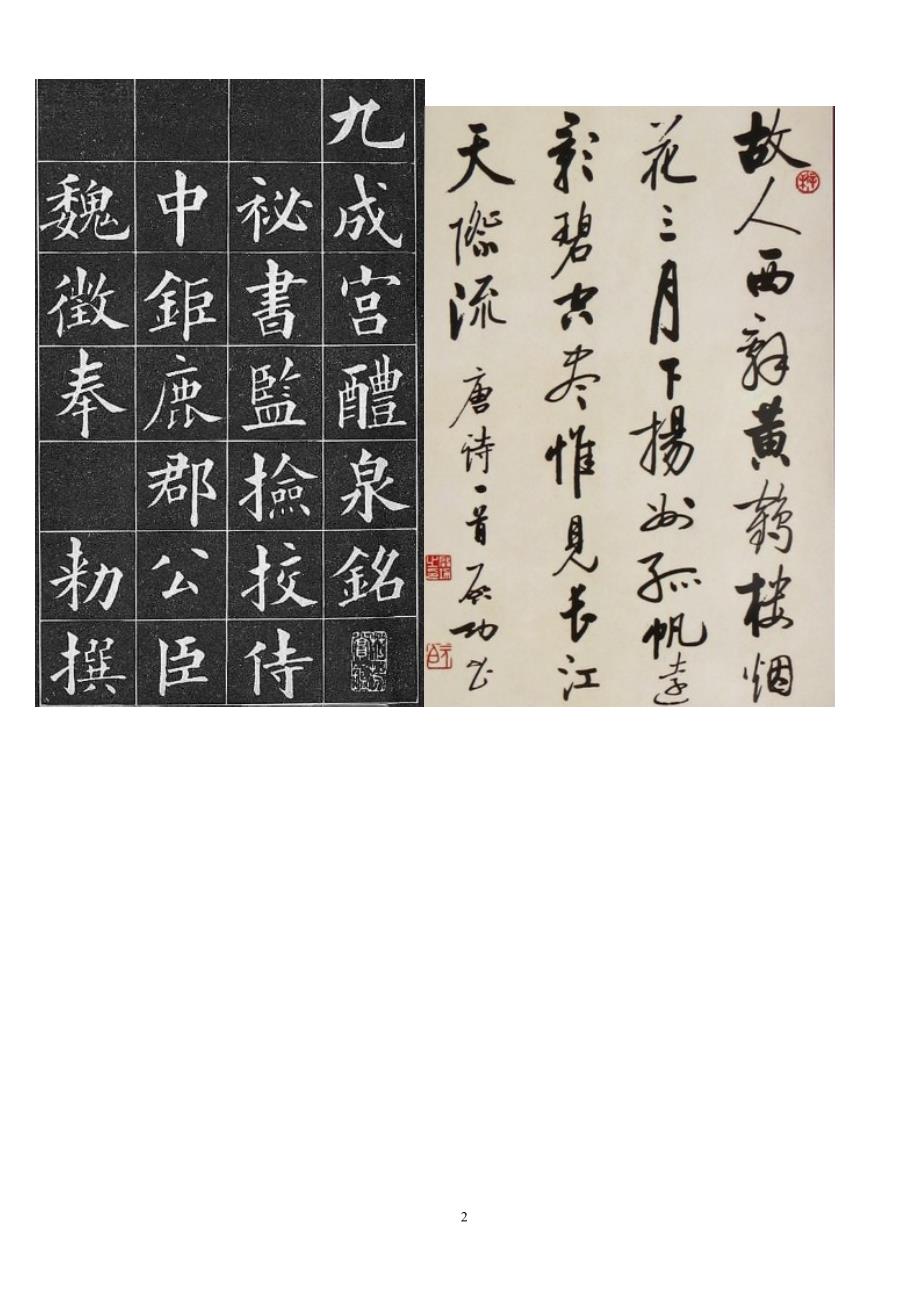 九成宫醴泉銘
祕書監撿挍侍
中鉅鹿郡公臣
魏徵奉 勑撰
故人西辞黄鶴楼烟
花三月下揚州孤帆遠
影碧空尽惟見長江
天際流 唐诗一首 启功书
2